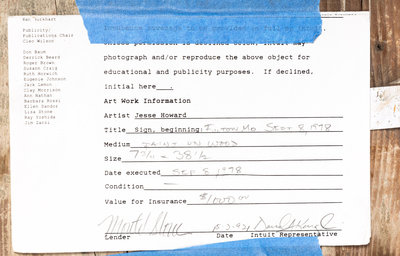 Ken Burkhart
Publicity/
Publications Chair
Cleo Wilson
Don Baum
Derrick Beard
Roger Brown
Susann Craig
Ruth Horwich
Eugenie Johnson
Jack Lemon
Clay Morrison
Ann Nathan
Barbara Rossi
Ellen Sandor
Lisa Stone
Ray Yoshida
Jim Zanzi
photograph and/or reproduce the above object for
educational and publicity purposes. If declined,
initial here___.
Art Work Information
Artist Jesse Howard
Title Sign, beginning: Fulton Mo Sept 8, 1978
Medium PAINT ON WOOD
Size 38 1/2
Date executed SEP 8 1978
Condition —
Value for Insurance $1000.00
Lender Date Intuit Representative